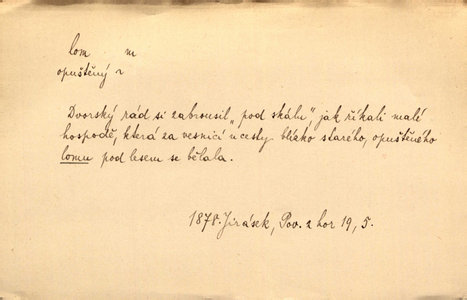 lom m
opuštěný
Dvorský rád si zabrousil „pod skálu“, jak říkali malé
hospodě, která za vesnicí u cesty blízko starého, opuštěného
lomu pod lesem se bělala.
1878. Jirásek, Pov. z hor 19, 5.